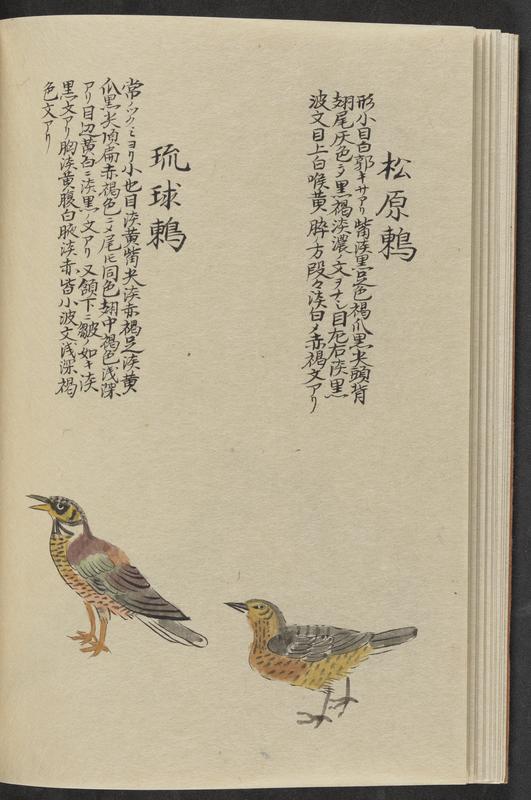 松原鶫
形小目白郭キサアリ觜淡黒足色褐爪黒尖頭背
翅尾灰色ニメ黒褐淡濃ノ文ヲナシ目左右淡黒
波文目上白喉黄脺方段々淡白メ赤褐文アリ
琉球鶫
常ノツクミヨリ小也目淡黄觜尖淡赤褐足淡黄
爪黒尖頂扁赤褐色ニメ尾ニ同色翅中褐色浅深
アリ目辺黄白ニ淡黒ノ文アリ又頷下ニ皺ノ如キ淡
黒文アリ胸淡黄腹白腋淡赤皆小波文浅深褐
色文アリ